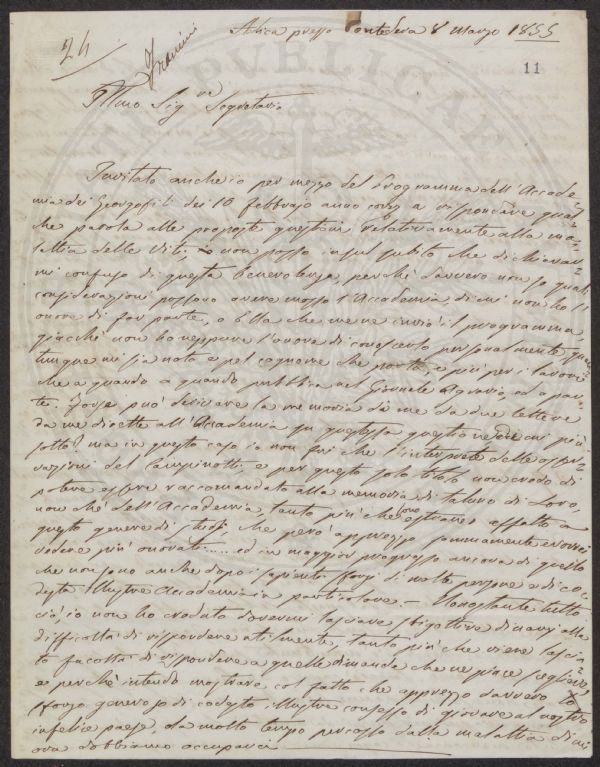 24
Franceschi
Alica presso Pontedera 8 Marzo 1855
11
Illmo Sigre Segretario
Invitato anch'io per mezzo del Programma dell'Accade=
mia dei Georgofili dei 10 febbrajo anno corrte a rispondere qual=
che parola alle proposte questioni relativamente alla ma=
lattia delle Viti, io non posso in sul subito che dichiarar=
mi confuso di questa benevolenza, perchè davvero non so quali
considerazioni possano avere mosso l'Accademia, di cui non ho l'
onore di far parte, o Ella che me ne inviò il programma,
giacchè non ho neppure l'onore di conoscerla personalmente quan=
tunque mi sia nota e pel cognome che porta, e più per i lavori
che a quando a quando pubblica nel Giornale Agrario, ed a par=
te. Forse può derivare la memoria di me da due lettere
da me dirette all'Accademia su questa questione di cui più
sotto? ma in questo caso io non fui che l'interprete delle osser=
vazioni del Campinotti e per questo solo titolo non credo di
potere essere raccomandato alla memoria di taluno di Loro,
non chè dell'Accademia, tanto più che sono estraneo affatto a
questo genere di studj, che però apprezzo sommamente e vorrei
vedere più onorati..... ed in maggior progresso ancora di quello
che non sono anche dopo i sapienti sforzi di molte persone e di co=
desta Illustre Accademia in particolare. - Nonostante tutto
ciò, io non ho creduto dovermi lasciare sbigottire dinanzi alla
difficoltà di rispondere utilmente, tanto più che viene lascia=
to facoltà di rispondere a quelle dimande che ne piace scegliere,
e perchè intendo mostrare col fatto che apprezzo davvero lo
sforzo generoso di codesto illustre consesso di giovare al nostro
infelice paese, da molto tempo percosso dalla malattia di cui
ora dobbiamo occuparci